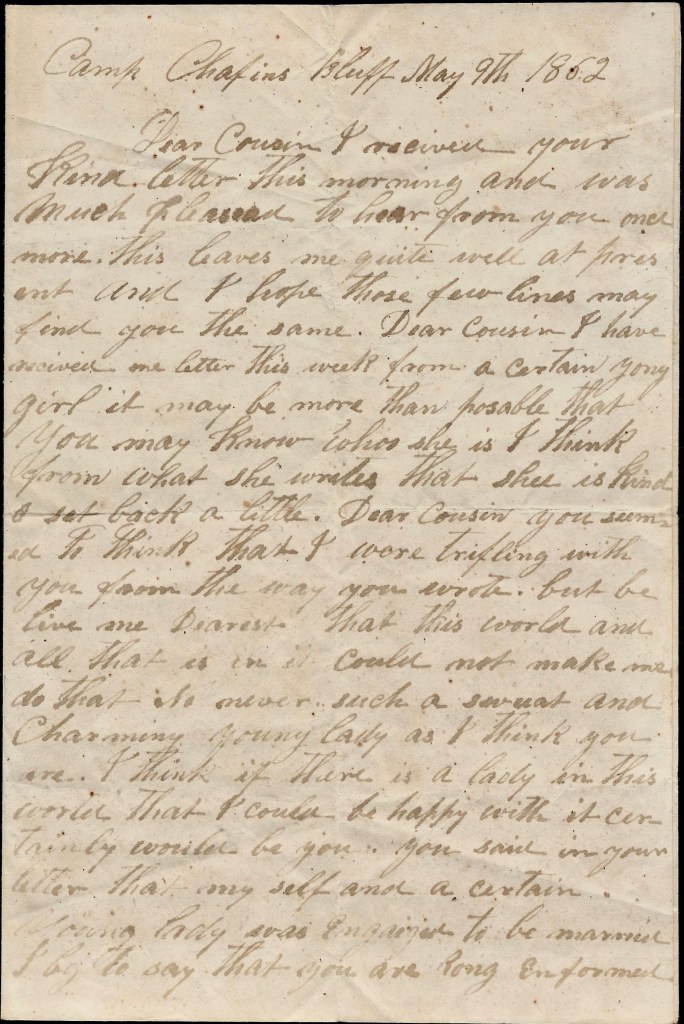 Camp Chafins Bluff May 9th 1862
Dear Cousin I recived your
Kind letter this morning and was
Much Pleasead to hear from you once
more. this leaves me quite well at pres
ent and I hope those few lines may
find you the same. Dear Cousin I have
recived one letter this week from a certain yong
girl it may be more than posable that
You may Know whoo she is I think
from what she writes that shee is Kind
a set back a little. Dear Cousin you seem-
ed To Think That I were trifling with
you from the way you wrote. but be
live me Dearest that this world and
all that is in it could not make me
do that No never such a sweat and
Charming Young lady as I think you
are. I think if there is a lady in this
world that I could be happy with it cer
tainly would be you. you said in your
letter that my self and a certain.
Young lady was Engaiged to be married
I beg to say that you are Rong Enformed